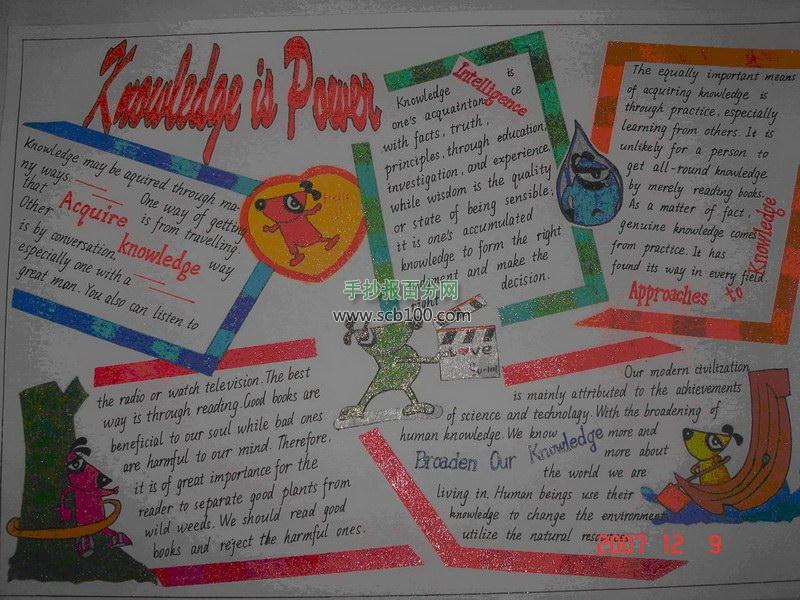 Knowledge is Power
Knowledge may be aquired through ma-
ny ways.
One way of getting
that
is from travelling.
Acquire knowledge
Other
way
is by conversation,
especially one with a
great man. You also can listen to
Hello
the radio or watch television. The best
way is through reading. Good books are
beneficial to our soul while bad ones
are harmful to our mind. Therefore,
it is of great importance for the
reader to separate good plants from
wild weeds. We should read good
books and reject the harmful ones.
Intelligence
Knowledge is
one's acquaintance
with facts, truth,
principles, through education,
investigation, and experience,
while wisdom is the quality
or state of being sensible;
it is one's accumulated
knowledge to form the right
and make the
right decision.
手抄报百分网
www.scb100.com
Love
The equally important means
of acquiring knowledge is
through practice, especially
learning from others. It is
unlikely for a person to
get all-round knowledge
by merely reading books.
As a matter of fact,
genuine knowledge comes
from practice. It has
found its way in every field.
Approaches to Knowledge
Our modern civilization
is mainly attributed to the achievements
of science and technology. With the broadening of
human knowledge. We know more and
Broaden Our Knowledge
more about
the world we are
living in. Human beings use their
knowledge to change the environment
utilize the natural resources
2007 12 9